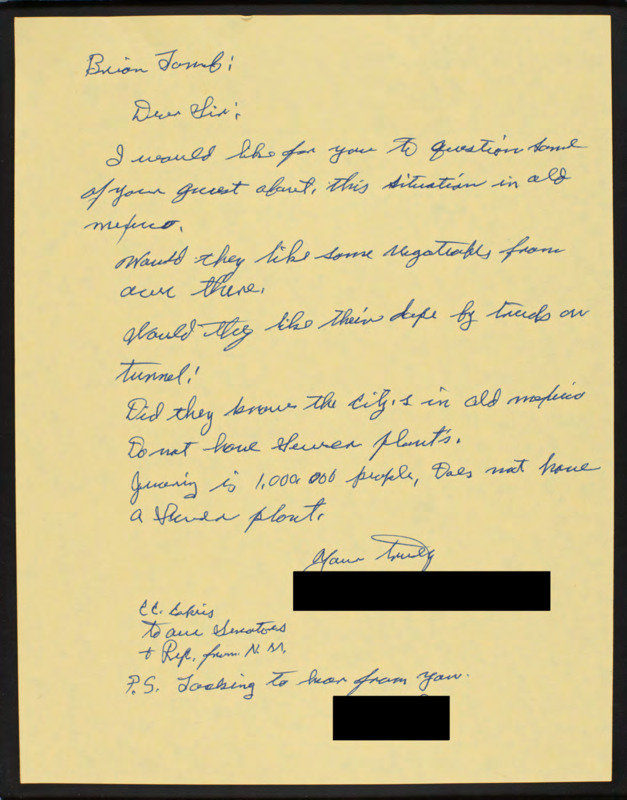 Brian Lamb:
Dear Sir:
I would like for you to question some
of your guest about, this situation in old
mexico.
Would they like some vegetables from
over there.
Would they like their dope by trucks or
tunnel!
Did they know the city,s in old mexico
Do not have Sewer plants.
is 1,000 000 people, Does not have
a Sewer plant.
Yours truly
CC. Copies
to our Senators
+ Rep. from N.M.
P.S. Looking to hear from you.